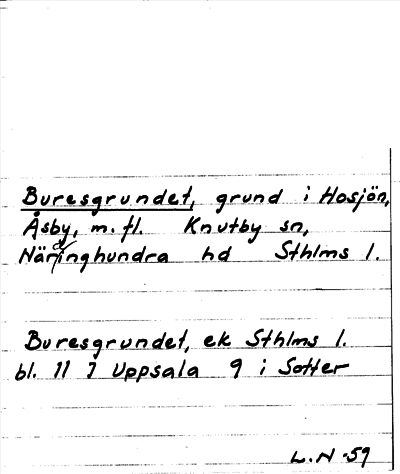 Buresgrundet, grund i Hosjön,
Åsby, m.fl. Knutby sn,
Närdinghundra hd Sthlms l.
Buresgrundet, ek Sthlms l.
bl. 11 J Uppsala 9 i Sotter
L.N -59